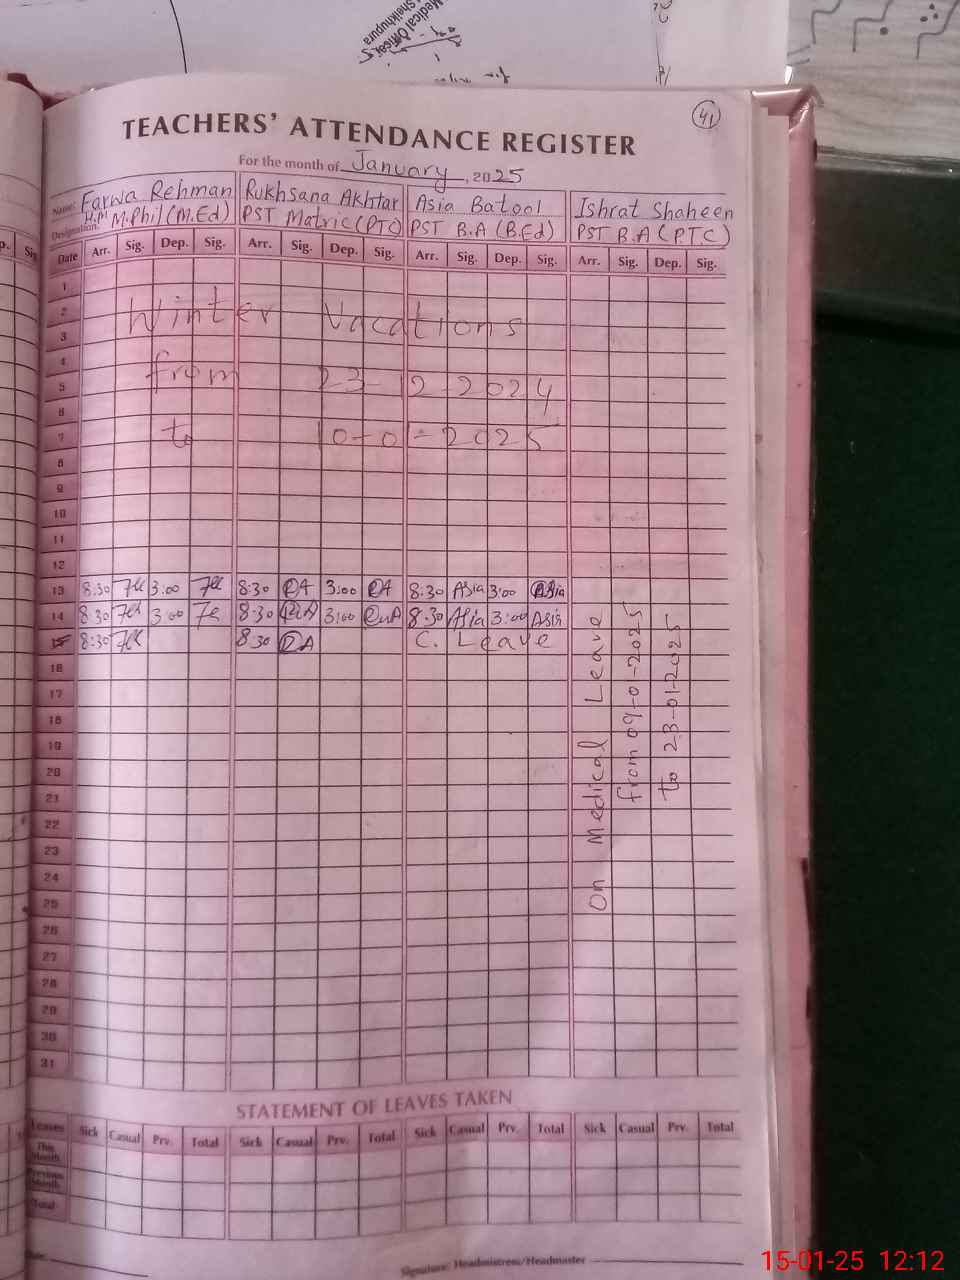 Medical Officer
Sheikhupura
41
TEACHERS' ATTENDANCE REGISTER
For the month of January, 2025
Name: Farwa Rehman Rukhsana Akhtar Asia Batool Ishrat Shaheen
Designation: H.M M.Phil (M.Ed) PST Matric (PTC) PST B.A (B.Ed) PST B.A (P.T.C)
Date Arr. Sig. Dep. Sig. Arr. Sig. Dep. Sig. Arr. Sig. Dep. Sig. Arr. Sig. Dep. Sig.
1
2 Winter Vacations
3
4
5 from 23-12-2024
6
7 to 10-01-2025
8
9
10
11
12
13 8:30 3:00 8:30 RA 3:00 RA 8:30 Asia 3:00 Asia
14 8:30 3:00 8:30 3:00 8:30 Asia 3:00 Asia
15 8:30 8:30 RA C. Leave
16
17
18
19
20
21
22
23
24
25
26
27
28
29
30
31
On Medical Leave
from 09-01-2025
to 23-01-2025
STATEMENT OF LEAVES TAKEN
Leaves Sick Casual Prv. Total Sick Casual Prv. Total Sick Casual Prv. Total Sick Casual Prv. Total
This Month
Previous Month
Total
Date: Signature: Headmistress/Headmaster
15-01-25 12:12